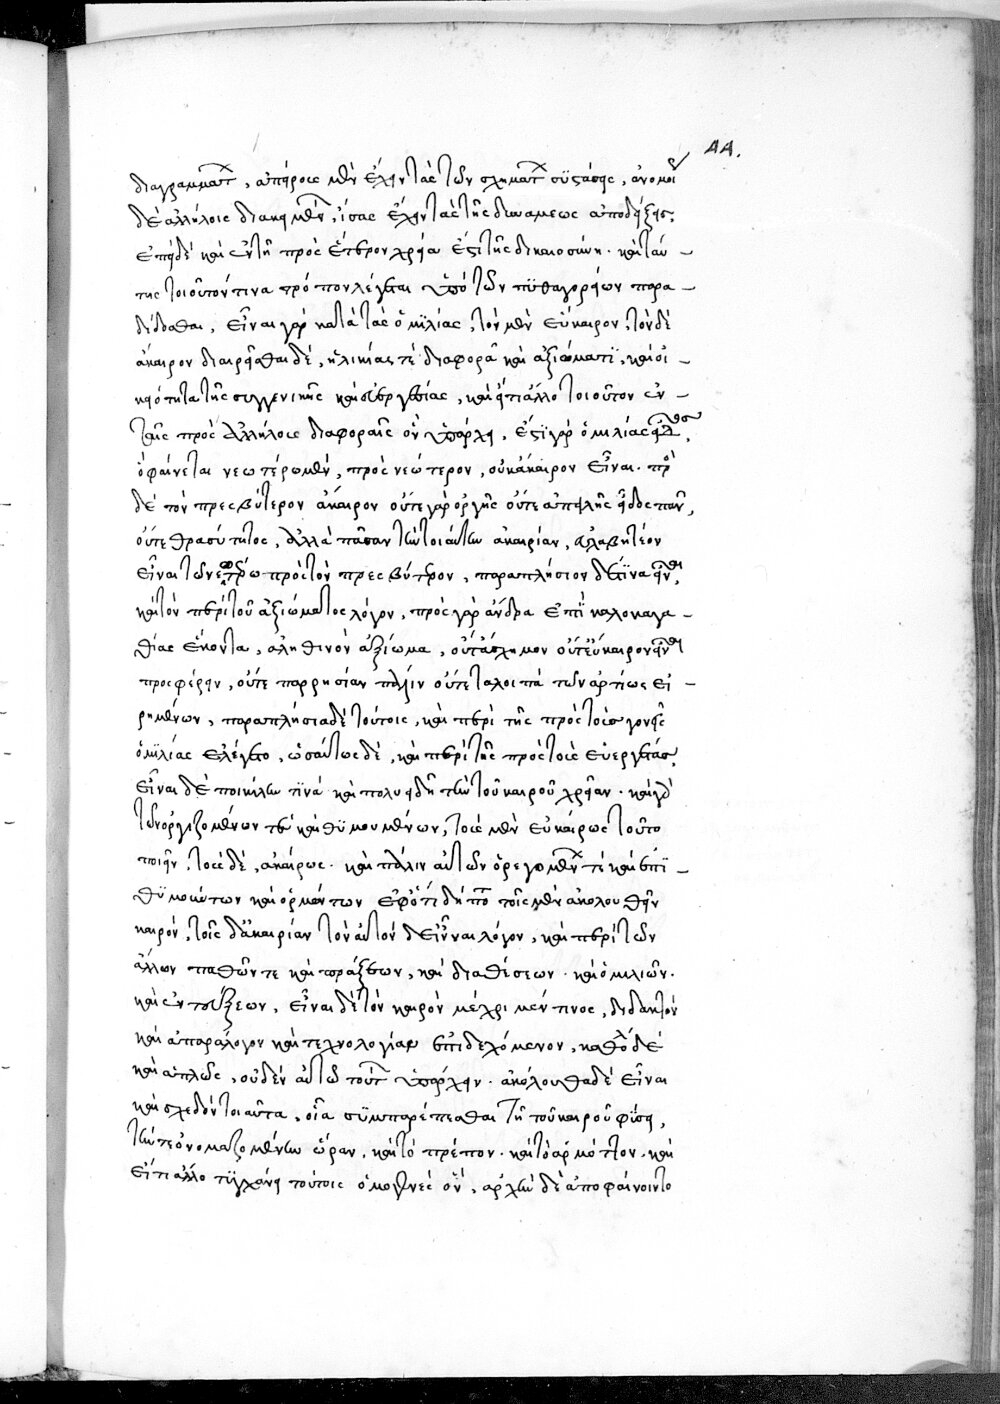 44.
διαγραμμάτ, ἀπείροις μὲν ἔχειν τὰς τῶν σχημάτ συστάσεις, ἀνομοί
δὲ ἀλλήλοις διακειμέν, ἴσας ἔχειν τὰς τῆς δυνάμεως ἀποδείξεις.
ἐπεὶ δὲ καὶ ἐν τῆ πρὸς ἕτερον χρεία ἐστὶ τῆς δικαιοσύνη. καὶ ταύ-
της τοιοῦτόν τινα τρόπον λέγεται ὑπὸ τῶν πυθαγορείων παρα-
δίδοσθαι, εἶναι γὰρ κατὰ τὰς ὁμιλίας, τὸν μὲν εὔκαιρον, τὸν δὲ
ἄκαιρον διαιρεῖσθαι δὲ, ἡλικίας τὲ διαφορᾶ καὶ ἀξιώματι, καὶ οἰ-
κειότητα τῆς συγγενικῆς καὶ εὐεργεσίας, καὶ εἴ τι ἄλλο τοιοῦτον ἐν
ταῖς πρὸς ἀλλήλοις διαφοραῖς ὂν ὑπάρχει, ἔστι γὰρ ὁμιλίας εἶδος,
ὃ φαίνεται νεωτέρω μὲν, πρὸς νεώτερον, οὐκ ἄκαιρον εἶναι. πρὸ
δὲ τὸν πρεσβύτερον ἄκαιρον οὔτε γὰρ ὀργῆς οὔτε ἀπειλῆς εἶδος πᾶν,
οὔτε θρασύτητος, ἀλλὰ πᾶσαν τὴν τοιαύτην ἀκαιρίαν, εὐλαβητέον
εἶναι τῶ νεωτέρω πρὸς τὸν πρεσβύτερον, παραπλήσιον δέ τινα εἶναι
καὶ τὸν περὶ τοῦ ἀξιώματος λόγον, πρὸς γὰρ ἄνδρα ἐπὶ καλοκαγα-
θίας ἥκοντα, ἀληθινὸν ἀξίωμα, οὔτ' εὔσχημον οὔτ' εὔκαιρον εἶναι
προσφέρειν, οὔτε παρρησίαν πολλὴν οὔτε τὰ λοιπὰ τῶν ἀρτίως εἰ-
ρημένων, παραπλήσια δὲ τούτοις, καὶ περὶ τῆς πρὸς τοὺς γονεῖς
ὁμιλίας ἐλέγετο, ὡσαύτως δὲ, καὶ περὶ τῆς πρὸς τοὺς εὐεργέτας,
εἶναι δὲ ποικίλην τινὰ καὶ πολυειδῆ τὴν τοῦ καιροῦ χρείαν. καὶ γὰρ
τῶν ὀργιζομένων τε καὶ θυμουμένων, τοὺς μὲν εὐκαίρως τοῦτο
ποιεῖν, τοὺς δὲ, ἀκαίρως. καὶ πάλιν αὐτῶν ὀρεγομέν τὲ καὶ ἐπι-
θυμούντων καὶ ὁρμώντων ἐφ' ὅτι δήποτε τοῖς μὲν ἀκολουθεῖν
καιρόν, τοῖς δ' ἀκαιρίαν τὸν αὐτὸν δ' εἶναι λόγον, καὶ περὶ τῶν
ἄλλων παθῶν τε καὶ πράξεων, καὶ διαθέσεων. καὶ ὁμιλιῶν.
καὶ ἐντεύξεων, εἶναι δὲ τὸν καιρὸν μέχρι μέν τινος, διδακτόν
καὶ ἀπαράλογον καὶ τεχνολογίαν ἐπιδεχόμενον, καθόλου δὲ
καὶ ἁπλῶς, οὐδὲν αὐτῶ τούτ ὑπάρχειν. ἀκόλουθα δὲ εἶναι
καὶ σχεδὸν τοιαῦτα, οἷα συμπαρέπεσθαι τῆ τοῦ καιροῦ φύσει,
τήν τε ὀνομαζομένην ὥραν, καὶ τὸ πρέπον. καὶ τὸ ἁρμόττον. καὶ
εἴ τι ἄλλο τυγχάνει τούτοις ὁμογενὲς ὂν, ἀρχὴν δὲ ἀποφαίνοντο